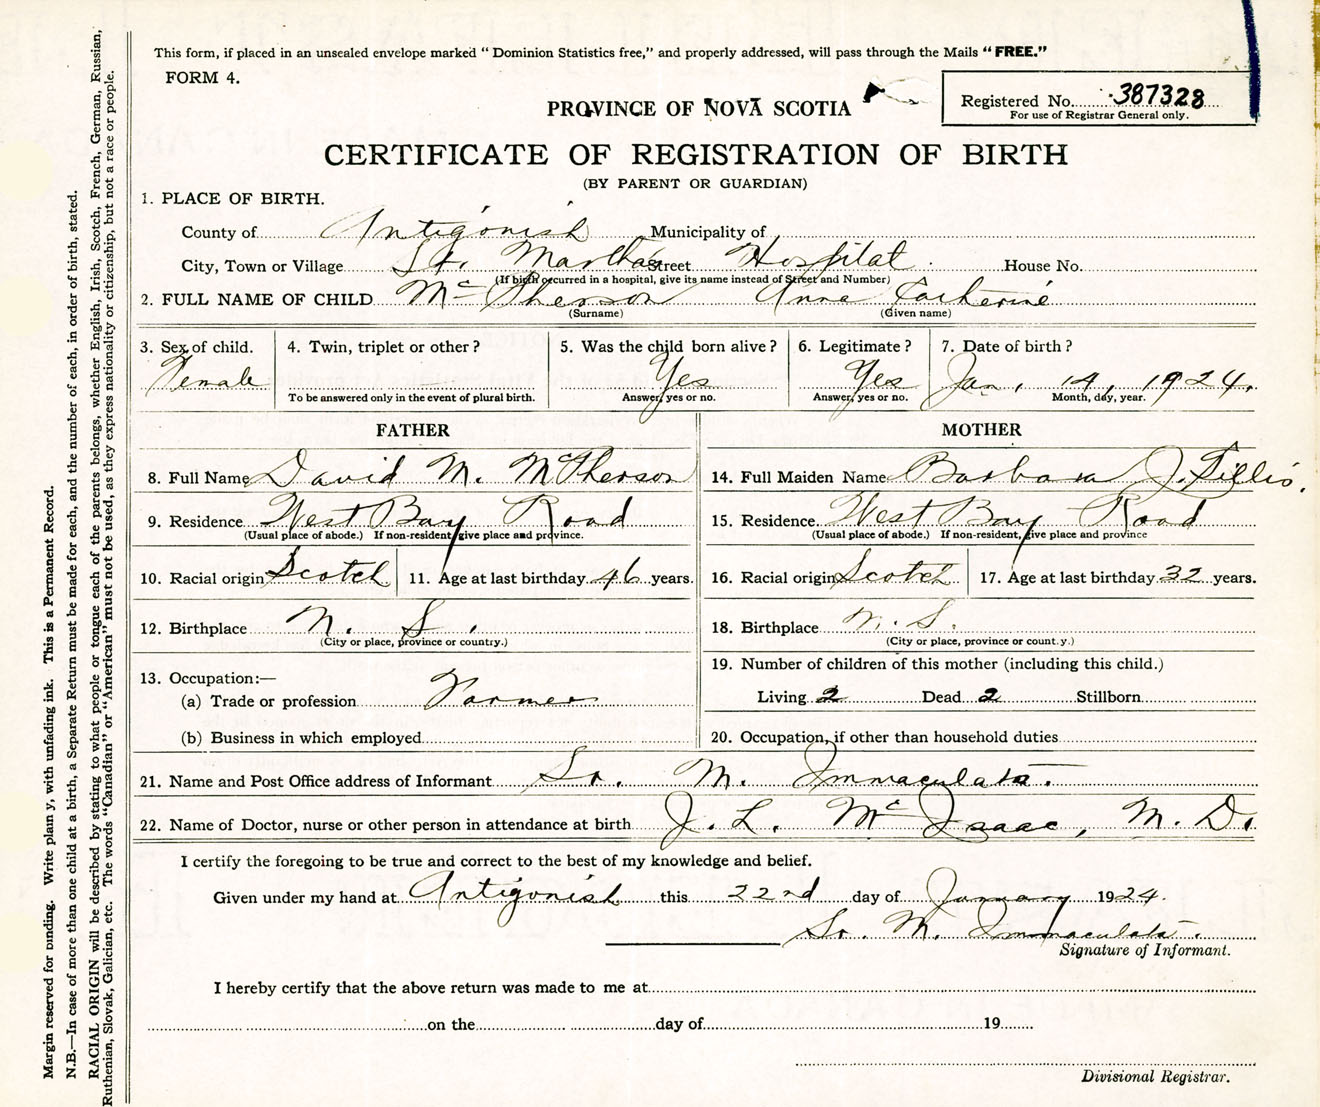 This form, if placed in an unsealed envelope marked “Dominion Statistics free,” and properly addressed, will pass through the Mails “FREE.”
FORM 4.
Registered No. 387328
For use of Registrar General only.
PROVINCE OF NOVA SCOTIA
CERTIFICATE OF REGISTRATION OF BIRTH
(BY PARENT OR GUARDIAN)
1. PLACE OF BIRTH.
County of Antigonish Municipality of
City, Town or Village St. Marthas Street Hospital. House No.
(If birth occurred in a hospital, give its name instead of Street and Number)
2. FULL NAME OF CHILD McPherson Anna Catherine
(Surname) (Given name)
3. Sex of child. 4. Twin, triplet or other? 5. Was the child born alive? 6. Legitimate? 7. Date of birth?
Female Yes Yes Jan. 14, 1924.
To be answered only in the event of plural birth. Answer, yes or no. Answer, yes or no. Month, day, year.
FATHER MOTHER
8. Full Name David M. McPherson 14. Full Maiden Name Barbara J. Gillis.
9. Residence West Bay Road 15. Residence West Bay Road
(Usual place of abode.) If non-resident, give place and province. (Usual place of abode.) If non-resident, give place and province
10. Racial origin Scotch 11. Age at last birthday 46 years. 16. Racial origin Scotch 17. Age at last birthday 32 years.
12. Birthplace N. S. 18. Birthplace N. S.
(City or place, province or country.) (City or place, province or count.y.)
19. Number of children of this mother (including this child.)
13. Occupation:—
(a) Trade or profession Farmer Living 2 Dead 2 Stillborn
(b) Business in which employed 20. Occupation, if other than household duties
21. Name and Post Office address of Informant Sr. M. Immaculata.
22. Name of Doctor, nurse or other person in attendance at birth J. L. McIsaac, M. D.
I certify the foregoing to be true and correct to the best of my knowledge and belief.
Given under my hand at Antigonish this 22nd day of January 1924.
Sr. M. Immaculata.
Signature of Informant.
I hereby certify that the above return was made to me at
on the day of 19
Divisional Registrar.
Margin reserved for binding. Write plain y, with unfading ink. This is a Permanent Record.
N.B.—In case of more than one child at a birth, a Separate Return must be made for each, and the number of each, in order of birth, stated.
RACIAL ORIGIN will be described by stating to what people or tongue each of the parents belongs, whether English, Irish, Scotch, French, German, Russian,
Ruthenian, Slovak, Galician, etc. The words “Canadian” or “American” must not be used, as they express nationality or citizenship, but not a race or people.